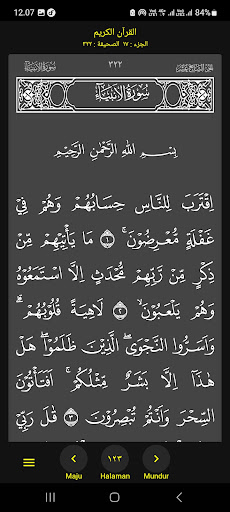 12.07 84%
القرآن الكريم
الجزء : ١٧ الصحيفة : ٣٢٢
سُورَةُ الأَنْبِيَاءِ ٣٢٢
سُورَةُ الْأَنْبِيَاءِ
بِسْمِ اللّٰهِ الرَّحْمٰنِ الرَّحِيْمِ
اِقْتَرَبَ لِلنَّاسِ حِسَابُهُمْ وَهُمْ فِيْ
غَفْلَةٍ مُّعْرِضُوْنَۚ ١ مَا يَأْتِيْهِمْ مِّنْ
ذِكْرٍ مِّنْ رَّبِّهِمْ مُّحْدَثٍ اِلَّا اسْتَمَعُوْهُ
وَهُمْ يَلْعَبُوْنَۙ ٢ لَاهِيَةً قُلُوْبُهُمْۗ
وَاَسَرُّوا النَّجْوَىۖ الَّذِيْنَ ظَلَمُوْاۖ هَلْ
هٰذَآ اِلَّا بَشَرٌ مِّثْلُكُمْۚ اَفَتَأْتُوْنَ
السِّحْرَ وَاَنْتُمْ تُبْصِرُوْنَ ٣ قٰلَ رَبِّيْ
١٢٣
Maju Halaman Mundur